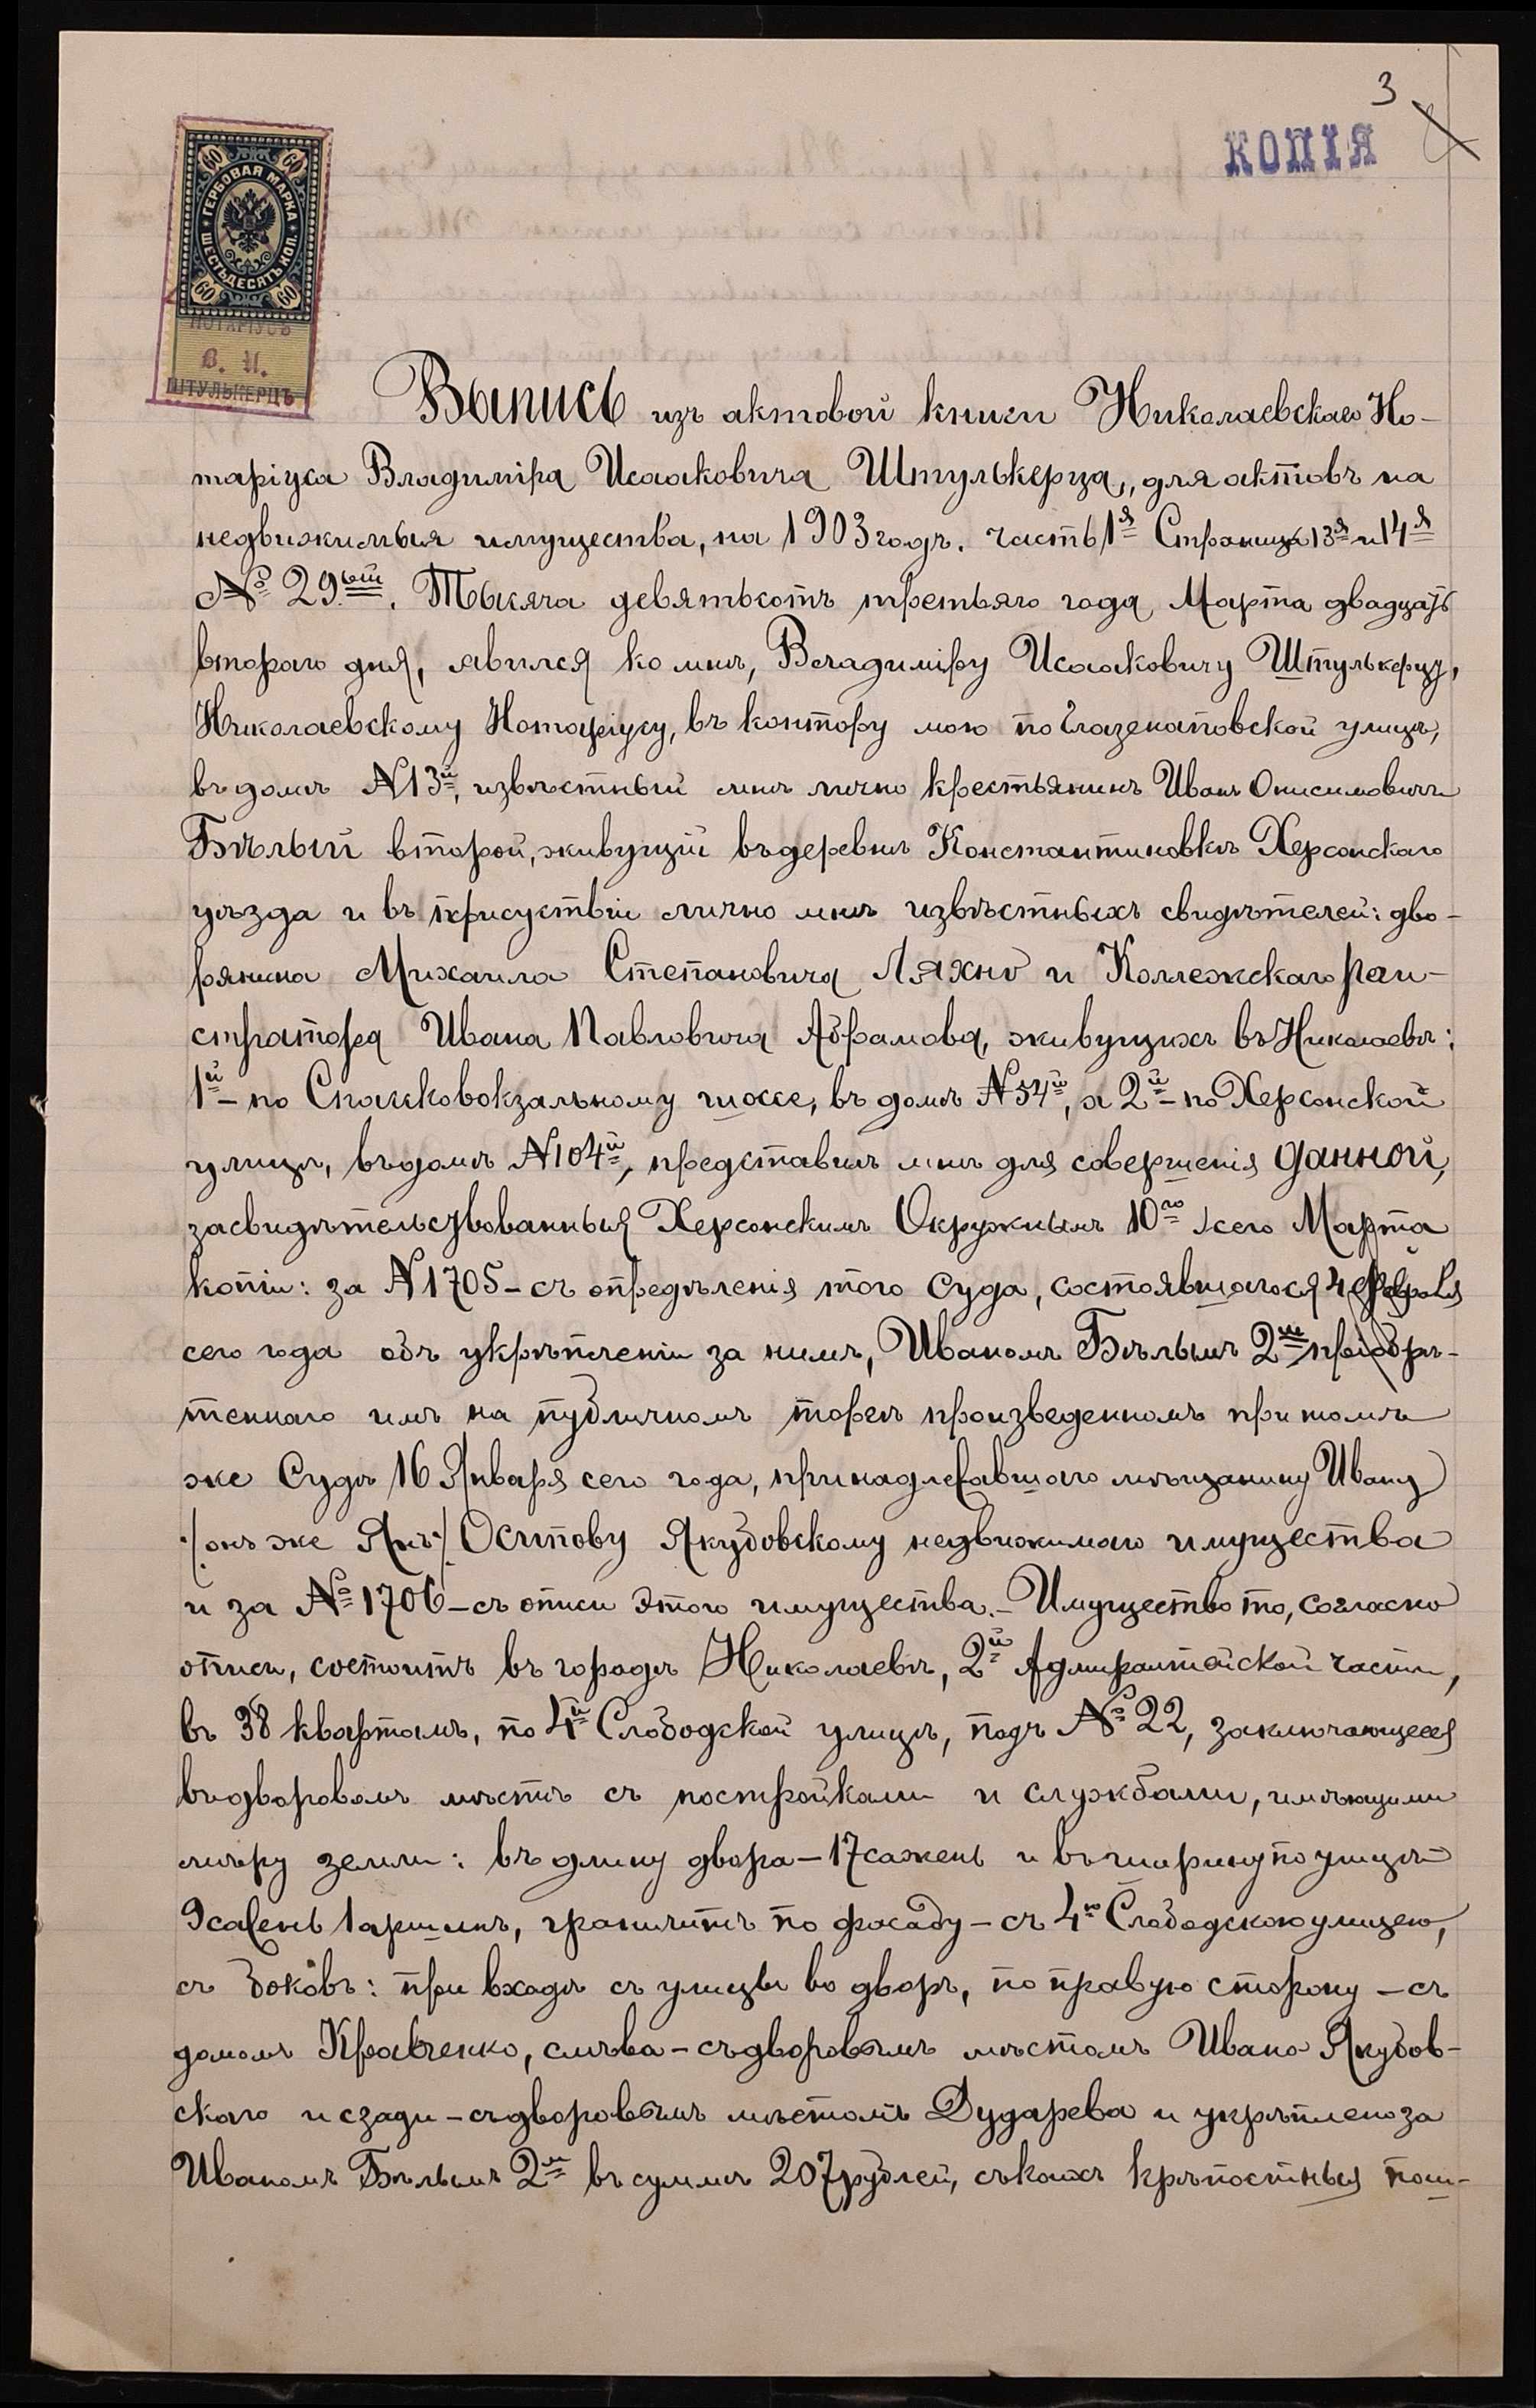 3
КОПІЯ
60 60
ГЕРБОВАЯ МАРКА
ШЕСТЬДЕСЯТЪ КОП.
60 60
НОТАРІУСЪ
В. И.
ШТУЛЬКЕРЦЪ
Выпись изъ актовой книги Николаевскаго Но-
таріуса Владиміра Исааковича Штулькерца, для актовъ на
недвижимыя имущества, на 1903 годъ. часть 1я Страница 13я и 14я
№ 29ый. Тысяча девятьсотъ третьяго года, Марта двадцать
втораго дня, явился ко мнѣ, Владиміру Исааковичу Штулькерцу,
Николаевскому Нотаріусу, въ контору мою по Глазенаповской улицѣ,
въ домѣ №13й, извѣстный мнѣ лично крестьянинъ Иванъ Онисимовичъ
Бѣлый второй, живущій въ деревнѣ Константиновкѣ Херсонскаго
уѣзда и въ присутствіи лично мнѣ извѣстныхъ свидѣтелей: дво-
рянина Михаила Степановича Ляхно и Коллежскаго Реги-
стратора Ивана Павловича Абрамова, живущихъ въ Николаевѣ:
1й - по Спасковокзальному шоссе, въ домѣ №54й, а 2й - по Херсонской
улицѣ, въ домѣ №104й, представилъ мнѣ для совершенія данной,
засвидѣтельствованныя Херсонскимъ Окружнымъ 10го сего Марта
копіи: за №1705 - съ опредѣленія того Суда, состоявшагося 4 Февраля
сего года объ укрѣпленіи за нимъ, Иваномъ Бѣлымъ 2мъ, пріобрѣ-
теннаго имъ на публичномъ торгѣ произведенномъ при томъ
же Судѣ 16 Января сего года, принадлежавшаго мѣщанину Ивану
/онъ же Янъ/ Осипову Якубовскому недвижимаго имущества
и за №1706 - съ описи этого имущества. - Имущество то, согласно
описи, состоитъ въ городѣ Николаевѣ, 2й Адмиралтейской части,
въ 38 кварталѣ, по 4й Слободской улицѣ, подъ №22, заключающееся
въ дворовомъ мѣстѣ съ постройками и службами, имѣющими
мѣру земли: въ длину двора - 17 сажень и въ ширину по улицѣ
9 сажень 1 аршинъ, граничитъ по фасаду - съ 4ю Слободскою улицею,
съ боковъ: при входѣ съ улицы во дворъ, по правую сторону - съ
домомъ Кравченко, слѣва - съ дворовымъ мѣстомъ Ивана Якубов-
скаго и сзади - съ дворовымъ мѣстомъ Дударева и укрѣплено за
Иваномъ Бѣлымъ 2мъ въ суммѣ 207 рублей, съ коихъ крѣпостныя пош-